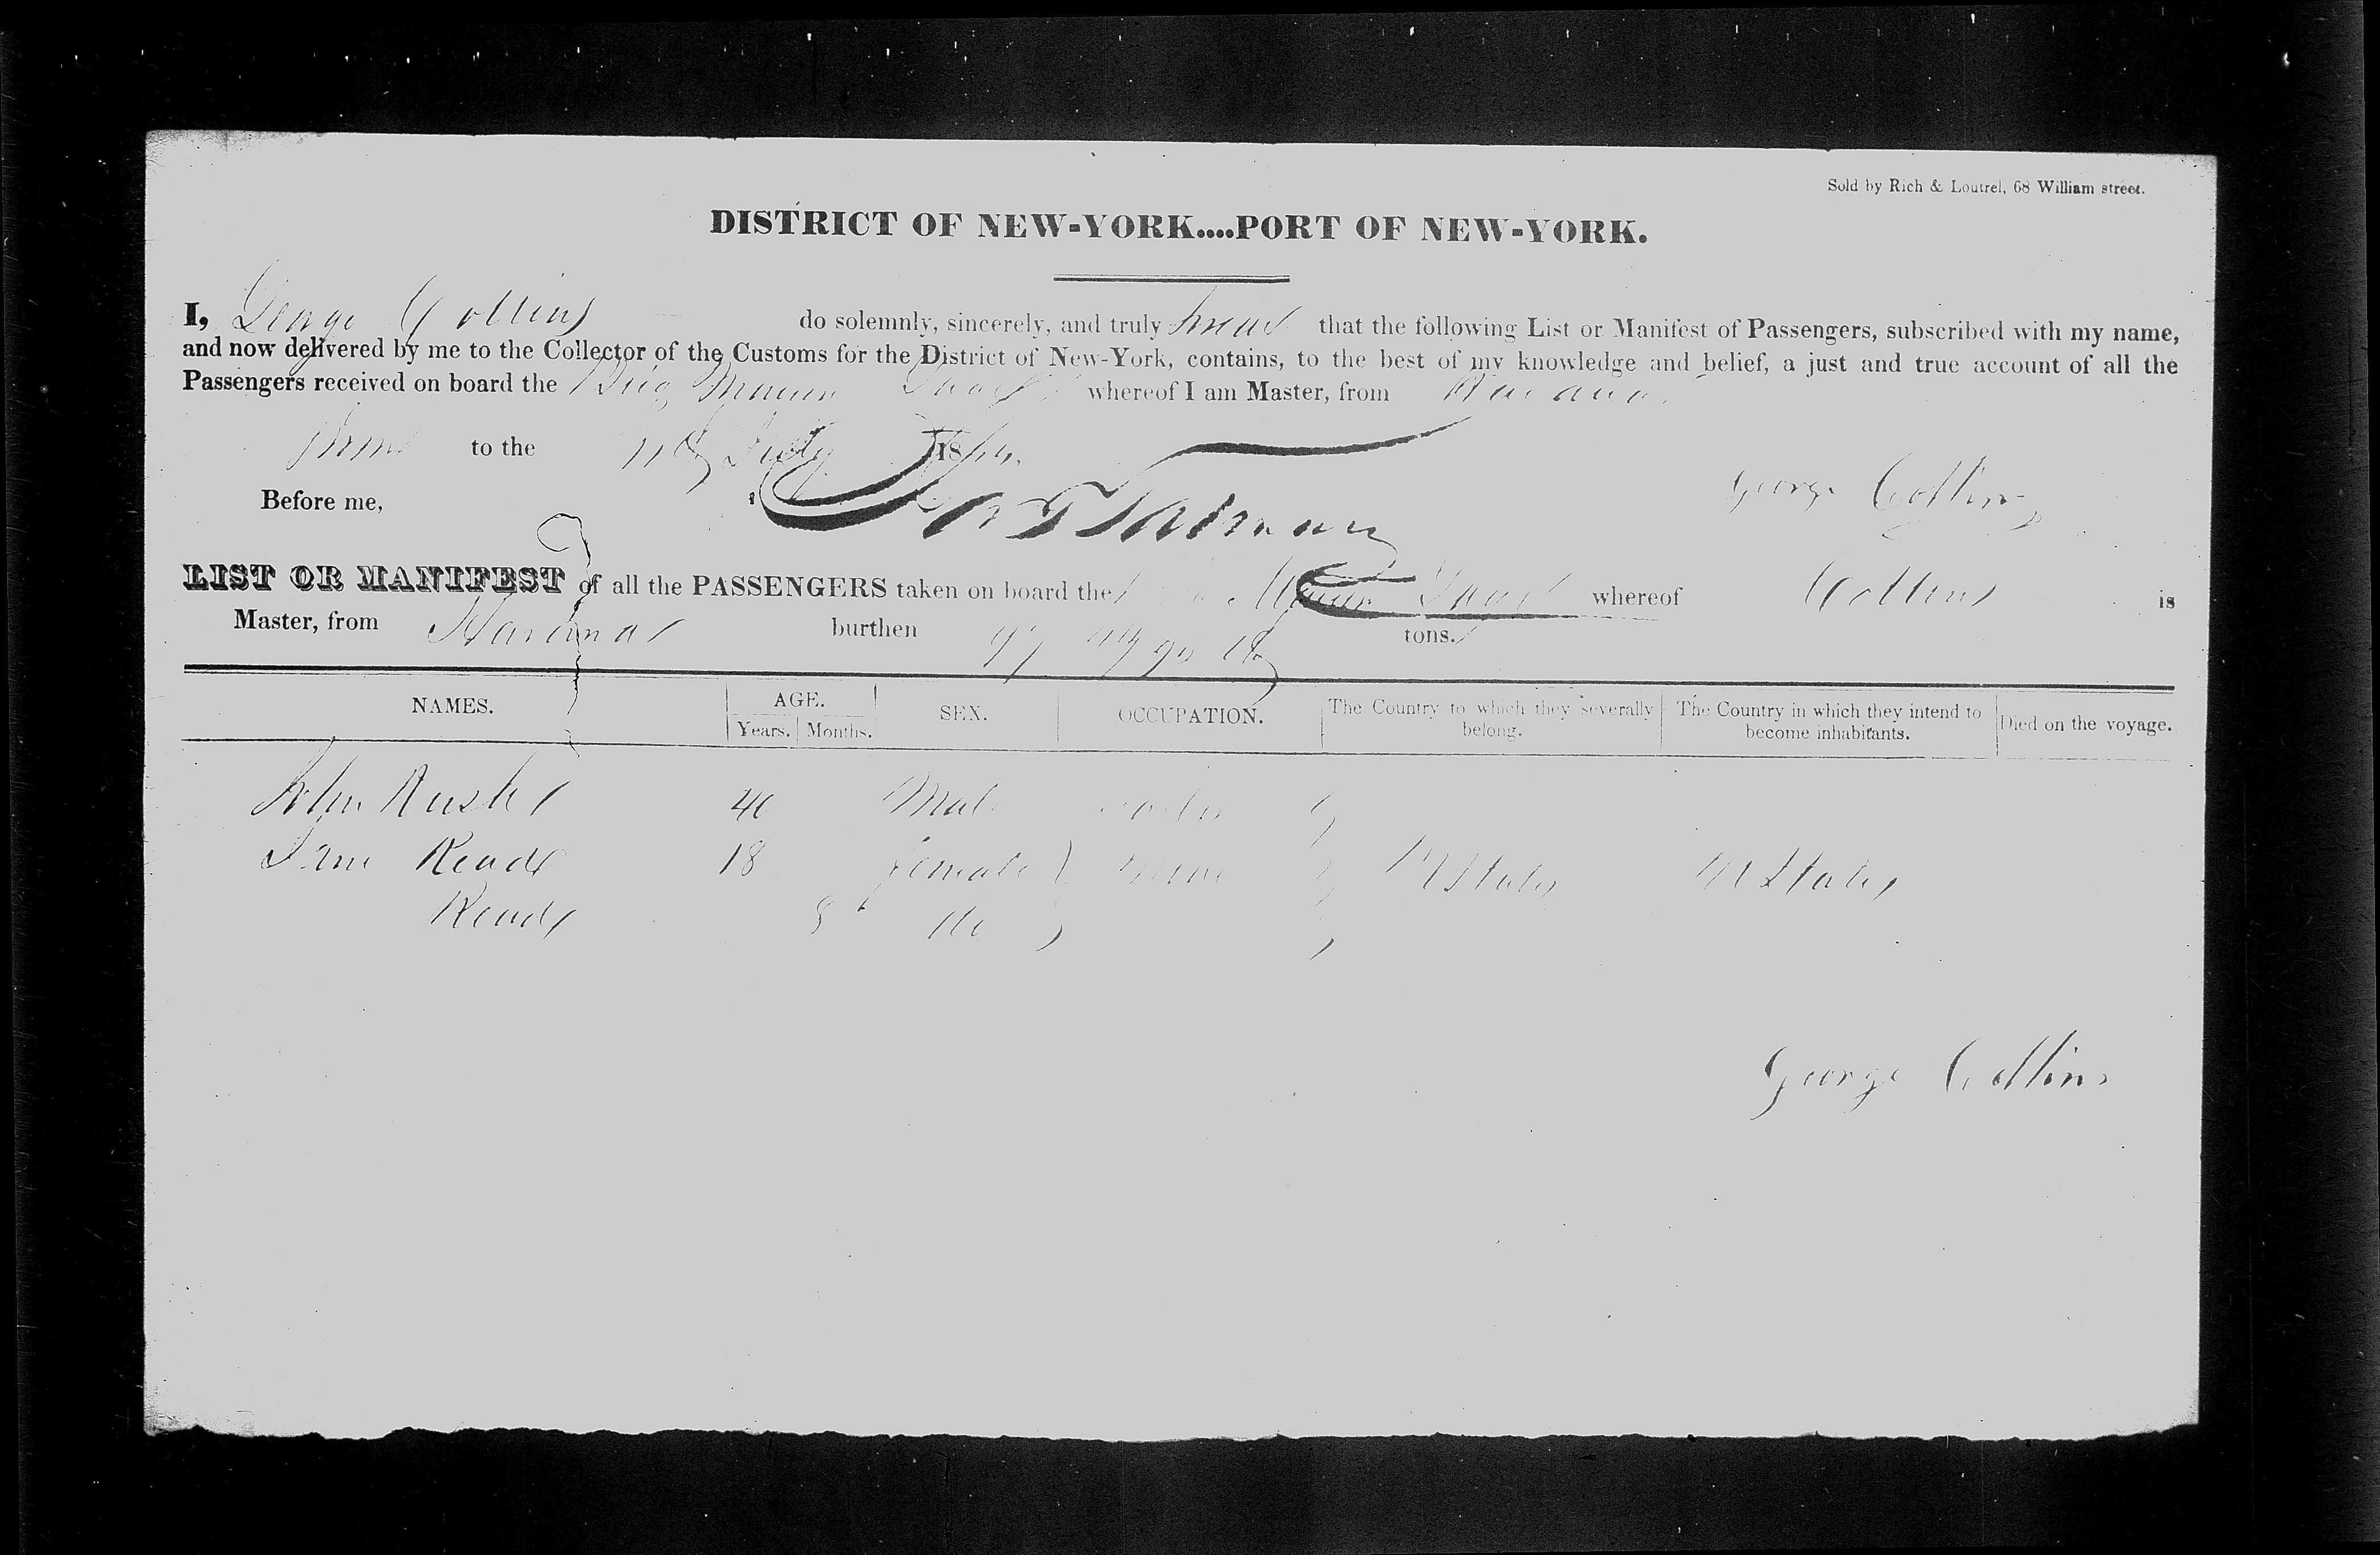 Sold by Rich & Loutrel, 68 William street.
DISTRICT OF NEW-YORK....PORT OF NEW-YORK.
I, George Collins do solemnly, sincerely, and truly swear that the following List or Manifest of Passengers, subscribed with my name,
and now delivered by me to the Collector of the Customs for the District of New-York, contains, to the best of my knowledge and belief, a just and true account of all the
Passengers received on board the Brig whereof I am Master, from Havana
to the July 184
George Collins
Before me,
LIST OR MANIFEST of all the PASSENGERS taken on board the whereof Collins is
Master, from Havana burthen tons.
NAMES. AGE. Years. Months. SEX. OCCUPATION. The Country to which they severally belong. The Country in which they intend to become inhabitants. Died on the voyage.
John 40 Male
Jane Read 18 female U States U States
Read 8 do
George Collins